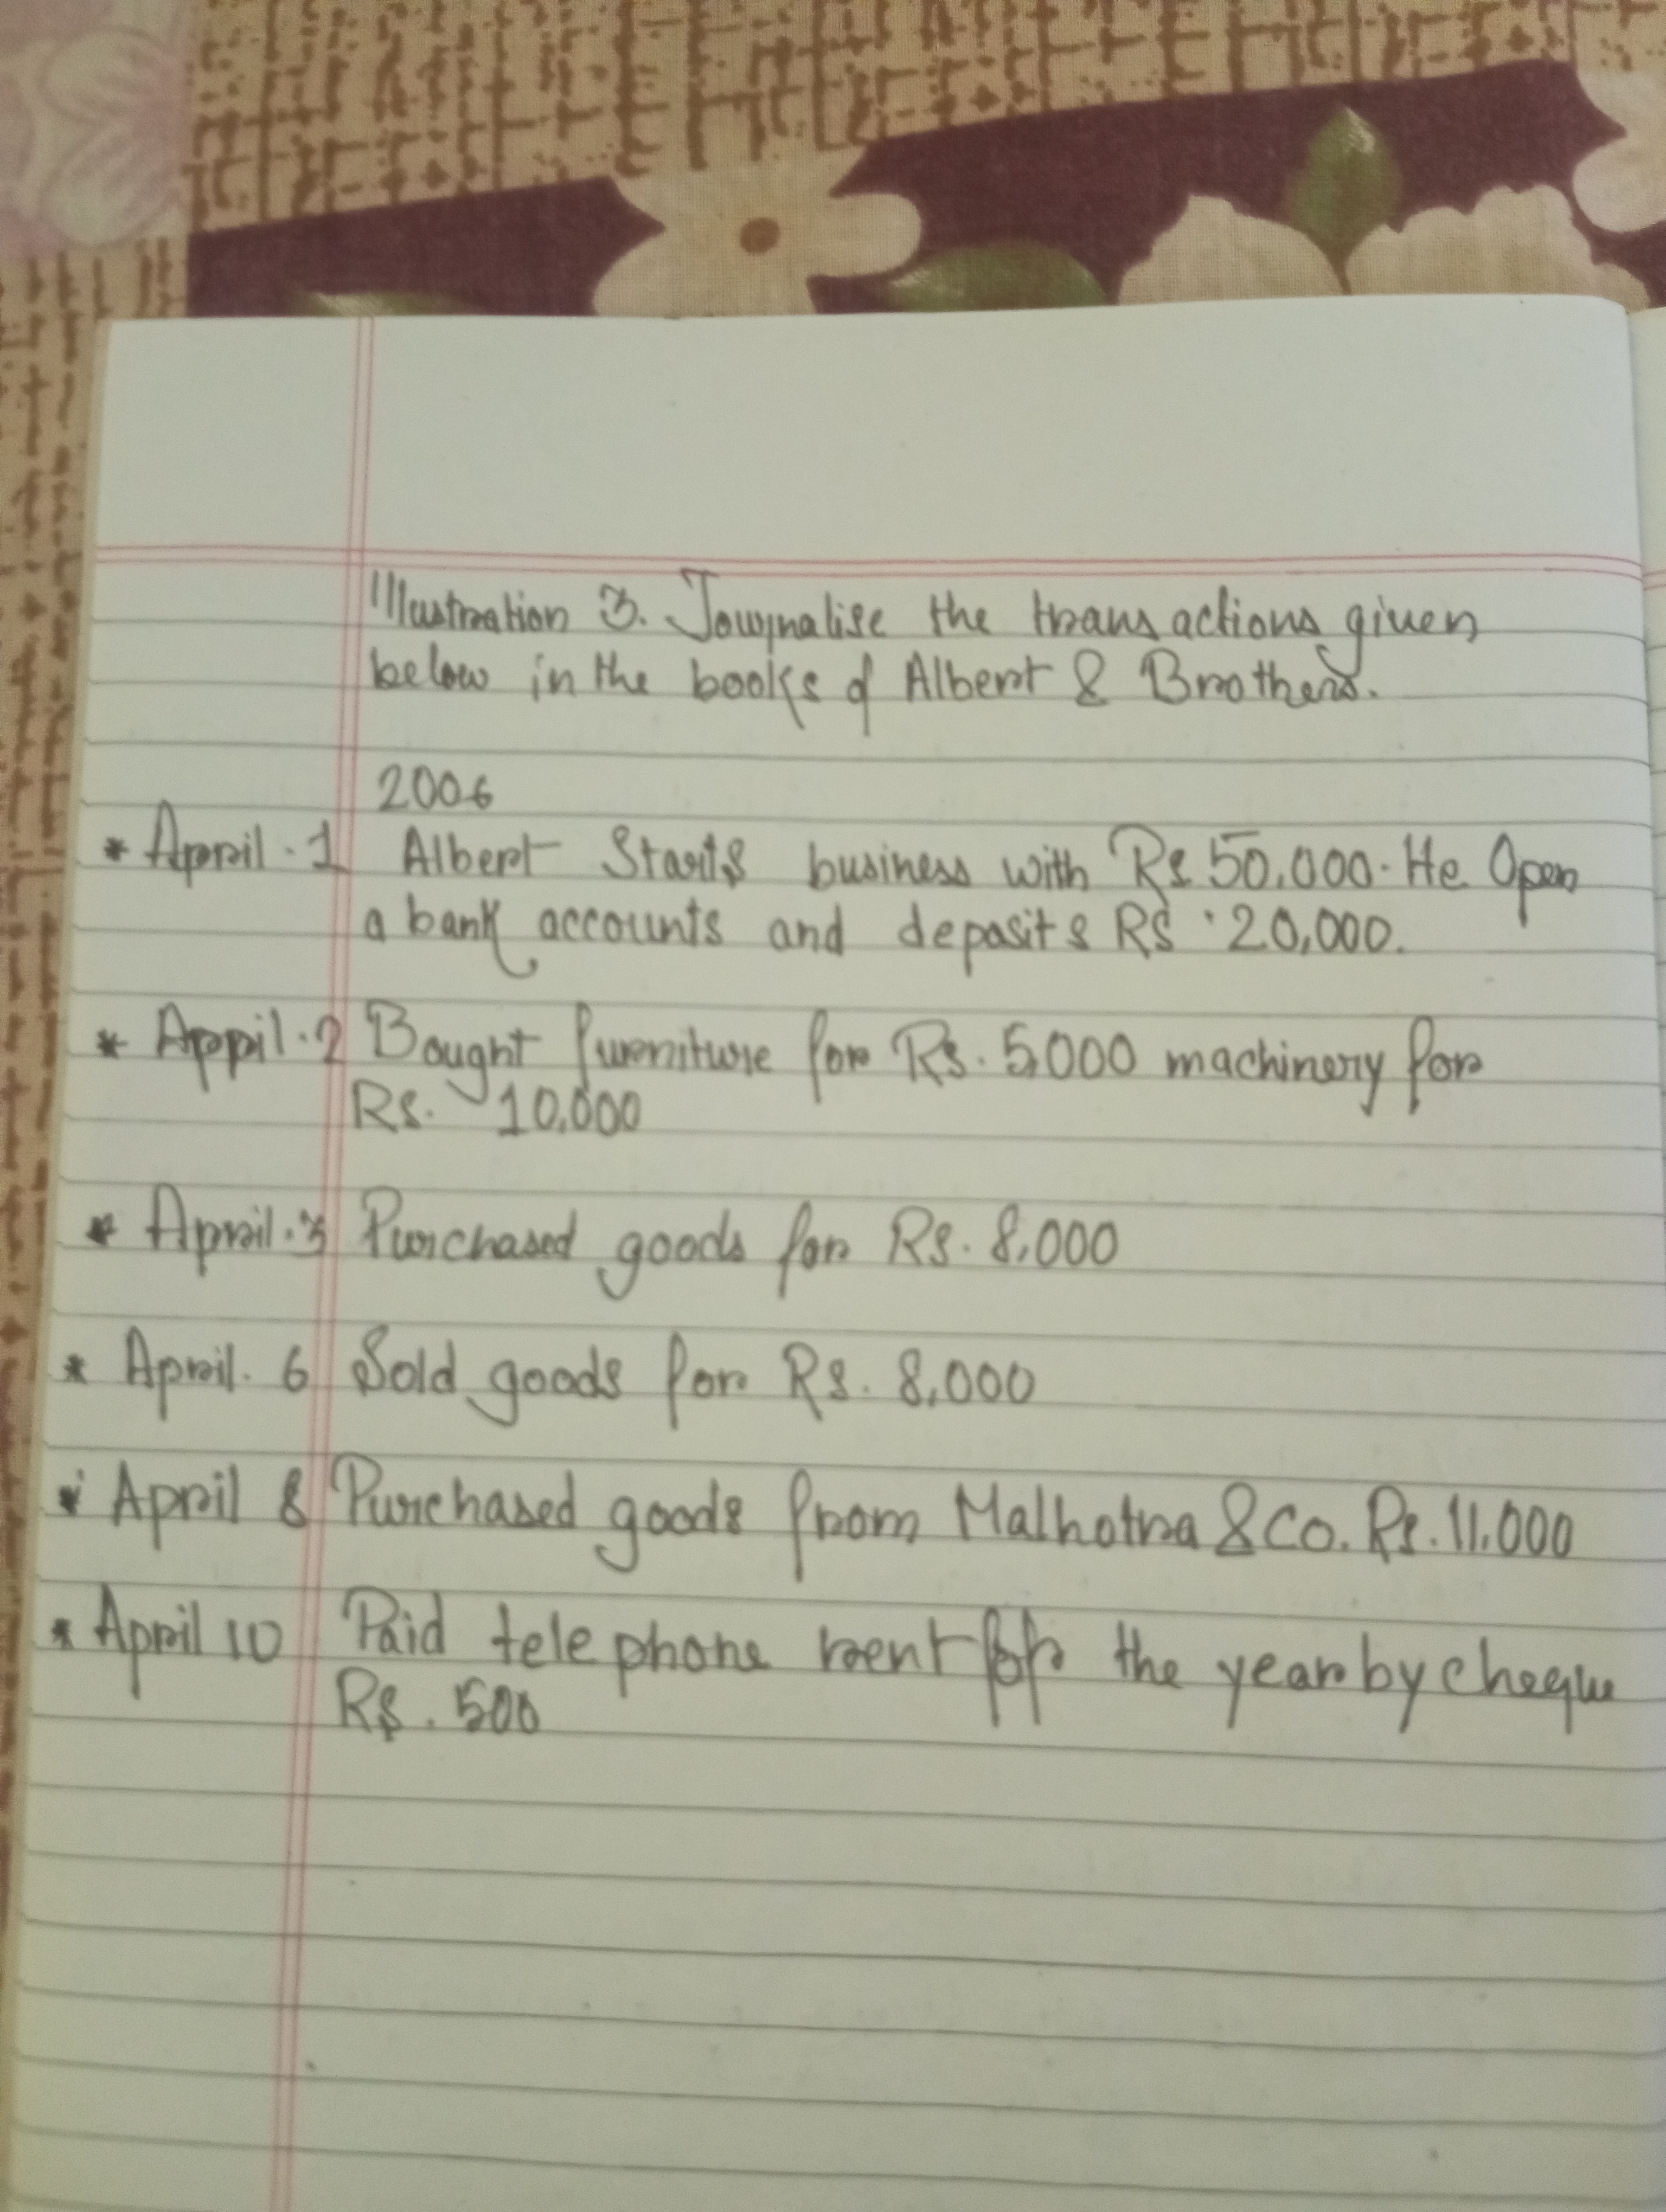 Illustration 3. Journalise the transactions given
below in the books of Albert & Brothers.
2006
* April. 1 Albert Starts business with Rs 50,000. He Open
a bank accounts and deposits Rs. 20,000.
* April. 2 Bought furniture for Rs. 5,000 machinery for
Rs. 10,000
* April. 3 Purchased goods for Rs. 8,000
* April. 6 Sold goods for Rs. 8,000
* April 8 Purchased goods from Malhotra & Co. Rs. 11,000
* April 10 Paid telephone rent for the year by cheque
Rs. 500